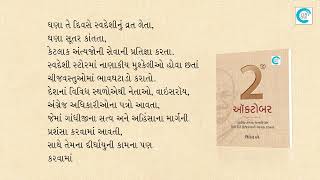 ઘણા તે દિવસે સ્વદેશીનું વ્રત લેતા,
ઘણા સૂતર કાંતતા,
કેટલાક અંત્યજોની સેવાની પ્રતિજ્ઞા કરતા.
સ્વદેશી સ્ટોરમાં નાણાકીય મુશ્કેલીઓ હોવા છતાં
ચીજવસ્તુઓમાં ભાવઘટાડો કરાતો.
દેશનાં વિવિધ સ્થળોએથી નેતાઓ, વાઇસરોય,
અંગ્રેજ અધિકારીઓના પત્રો આવતા,
જેમાં ગાંધીજીના સત્ય અને અહિંસાના માર્ગની
પ્રશંસા કરવામાં આવતી,
સાથે તેમના દીર્ઘાયુની કામના પણ
કરવામાં
2
ઑક્ટોબર